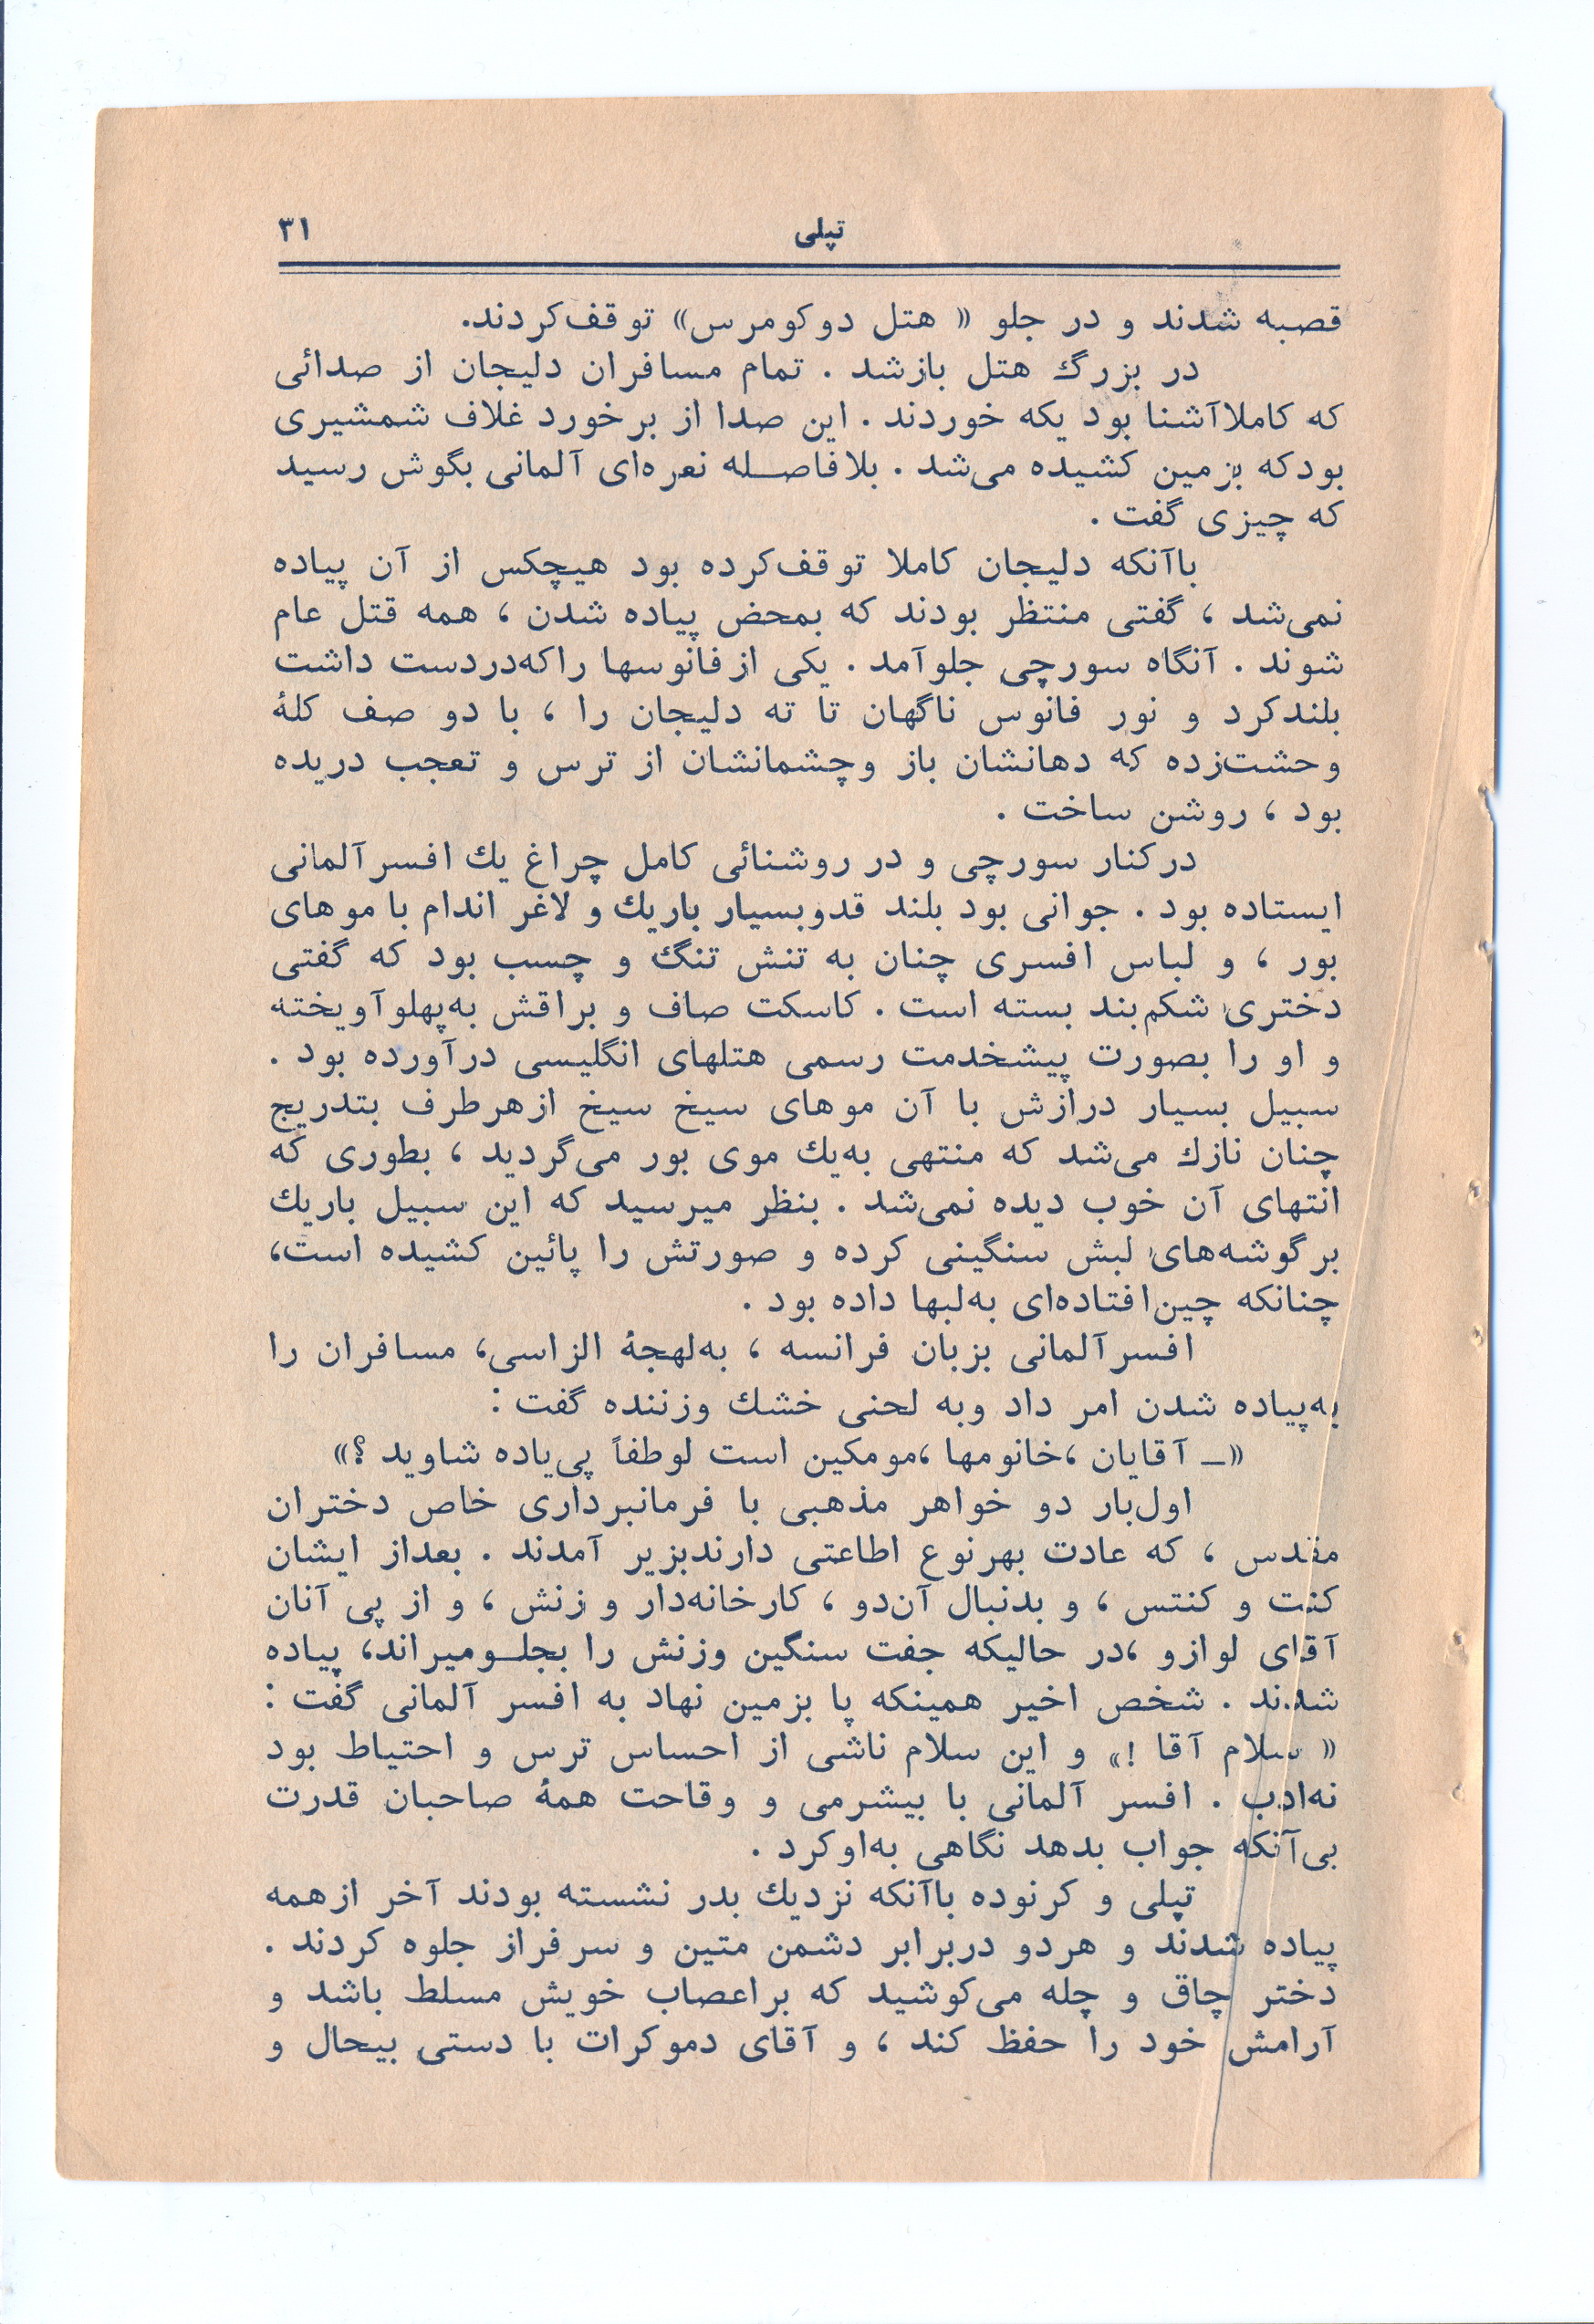 تپلی
۳۱
قصبه شدند و در جلو « هتل دو کومرس» توقف‌کردند.
در بزرگ هتل بازشد . تمام مسافران دلیجان از صدائی
که کاملاآشنا بود یکه خوردند . این صدا از برخورد غلاف شمشیری
بودکه بزمین کشیده می‌شد . بلافاصله نعره‌ای آلمانی بگوش رسید
که چیزی گفت .
باآنکه دلیجان کاملا توقف‌کرده بود هیچکس از آن پیاده
نمی‌شد ، گفتی منتظر بودند که بمحض پیاده شدن ، همه قتل عام
شوند . آنگاه سورچی جلوآمد . یکی ازفانوسها راکه‌دردست داشت
بلندکرد و نور فانوس ناگهان تا ته دلیجان را ، با دو صف کلهٔ
وحشت‌زده که دهانشان باز وچشمانشان از ترس و تعجب دریده
بود ، روشن ساخت .
درکنار سورچی و در روشنائی کامل چراغ یك افسرآلمانی
ایستاده بود . جوانی بود بلند قدوبسیار باریك و لاغر اندام با موهای
بور ، و لباس افسری چنان به تنش تنگ و چسب بود که گفتی
دختری شکم‌بند بسته است . کاسکت صاف و براقش به‌پهلوآویخته
و او را بصورت پیشخدمت رسمی هتلهای انگلیسی درآورده بود .
سبیل بسیار درازش با آن موهای سیخ سیخ ازهرطرف بتدریج
چنان نازك می‌شد که منتهی به‌یك موی بور می‌گردید ، بطوری که
انتهای آن خوب دیده نمی‌شد . بنظر میرسید که این سبیل باریك
برگوشه‌های لبش سنگینی کرده و صورتش را پائین کشیده است،
چنانکه چین‌افتاده‌ای به‌لبها داده بود .
افسرآلمانی بزبان فرانسه ، به‌لهجهٔ الزاسی، مسافران را
به‌پیاده شدن امر داد وبه لحنی خشك وزننده گفت :
«ــ آقایان ،خانومها ،مومکین است لوطفاً پی‌یاده شاوید ؟»
اول‌بار دو خواهر مذهبی با فرمانبرداری خاص دختران
مقدس ، که عادت بهرنوع اطاعتی دارندبزیر آمدند . بعداز ایشان
کنت و کنتس ، و بدنبال آن‌دو ، کارخانه‌دار و زنش ، و از پی آنان
آقای لوازو ،در حالیکه جفت سنگین وزنش را بجلومیراند، پیاده
شدند . شخص اخیر همینکه پا بزمین نهاد به افسر آلمانی گفت :
« سلام آقا !» و این سلام ناشی از احساس ترس و احتیاط بود
نه‌ادب . افسر آلمانی با بیشرمی و وقاحت همهٔ صاحبان قدرت
بی‌آنکه جواب بدهد نگاهی به‌اوکرد .
تپلی و کرنوده باآنکه نزدیك بدر نشسته بودند آخر ازهمه
پیاده شدند و هردو دربرابر دشمن متین و سرفراز جلوه کردند .
دختر چاق و چله می‌کوشید که براعصاب خویش مسلط باشد و
آرامش خود را حفظ کند ، و آقای دموکرات با دستی بیحال و